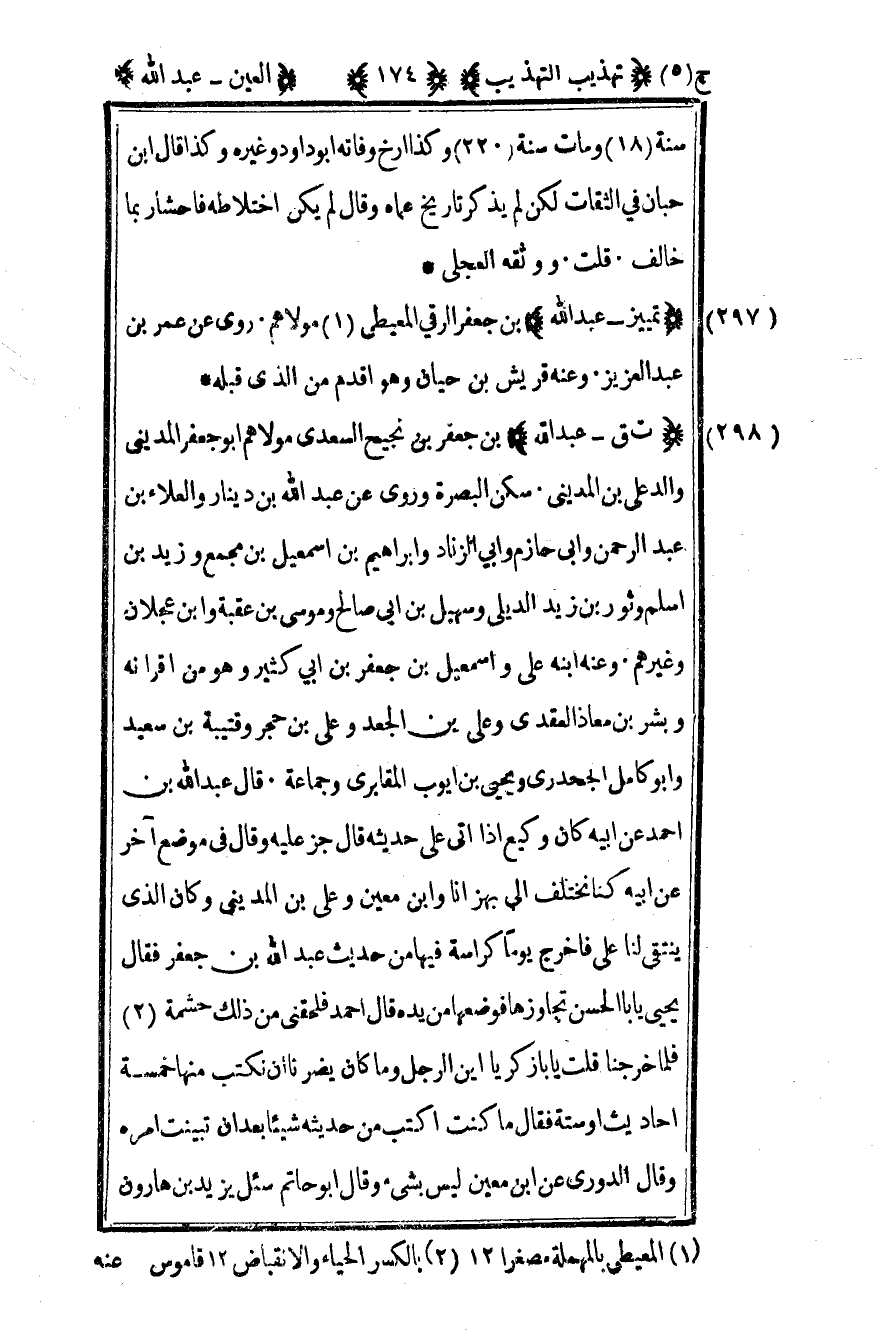 ج(٥) ﴿ تهذيب التهذيب ﴾ ﴿ ١٧٤ ﴾ ﴿ العين - عبد الله ﴾
سنة (١٨) ومات سنة (٢٢٠) وكذا ارخ وفاته ابوداود وغيره وكذا قال ابن
حبان في الثقات لكن لم يذكر تاريخ عماه وقال لم يكن اختلاطه فاحشا ربما
خالف ٠ قلت ٠ ووثقه العجلى *
(٢٩٧) ﴿ تمييز - عبدالله ﴾ بن جعفر الرقي المعيطى (١) مولاهم ٠ روى عن عمر بن
عبدالعزيز ٠ وعنه قريش بن حيان وهو اقدم من الذى قبله *
(٢٩٨) ﴿ ت ق - عبدالله ﴾ بن جعفر بن نجيح السعدى مولاهم ابوجعفر المدينى
والد على بن المدينى ٠ سكن البصرة وروى عن عبد الله بن دينار والعلاء بن
عبد الرحمن وابى حازم وابي الزناد وابراهيم بن اسمعيل بن مجمع وزيد بن
اسلم وثور بن زيد الديلى وسهيل بن ابي صالح وموسى بن عقبة وابن عجلان
وغيرهم ٠ وعنه ابنه على واسمعيل بن جعفر بن ابي كثير وهو من اقرانه
وبشر بن معاذ العقدى وعلى بن الجعد وعلى بن حجر وقتيبة بن سعيد
وابوكامل الجحدرى ويحيى بن ايوب المقابرى وجماعة ٠ قال عبدالله بن
احمد عن ابيه كان وكيع اذا اتى على حديثه قال جز عليه وقال فى موضع آخر
عن ابيه كنا نختلف الي بهز انا وابن معين وعلى بن المديني وكان الذى
ينتقى لنا على فاخرج يوماً كراسة فيها من حديث عبد الله بن جعفر فقال
يحيى يا با الحسن تجاوزها فوضعها من يده قال احمد فلحقنى من ذلك حشمة (٢)
فلما خرجنا قلت يا باز كريا اين الرجل وما كان يضرنا ان نكتب منها خمسة
احاديث اوستة فقال ما كنت اكتب من حديثه شيئا بعد ان تبينت امره
وقال الدورى عن ابن معين ليس بشىء وقال ابوحاتم سئل يزيد بن هارون
(١) المعيطى بالمهملة مصغرا ١٢ (٢) بالكسر الحياء والانقباض ١٢ قاموس عنه